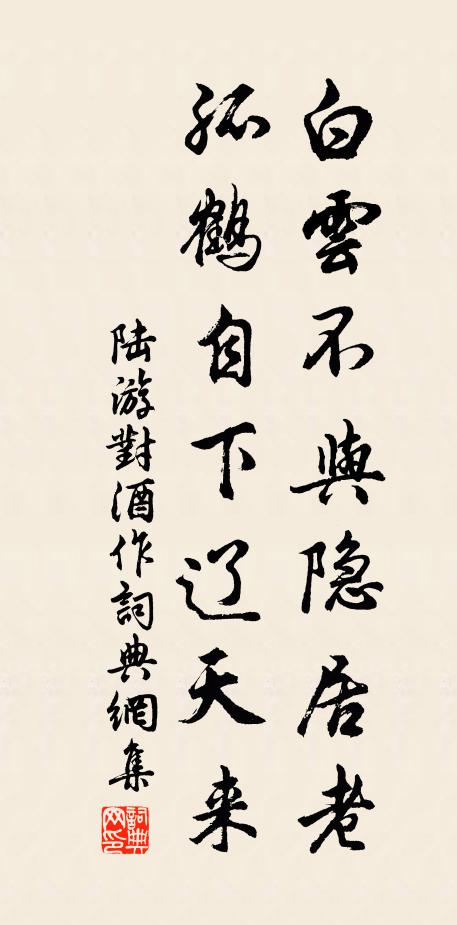 白雲不與隐居老
孤鶴自下辽天来
陆游對酒作詞典網集
詞典
网印